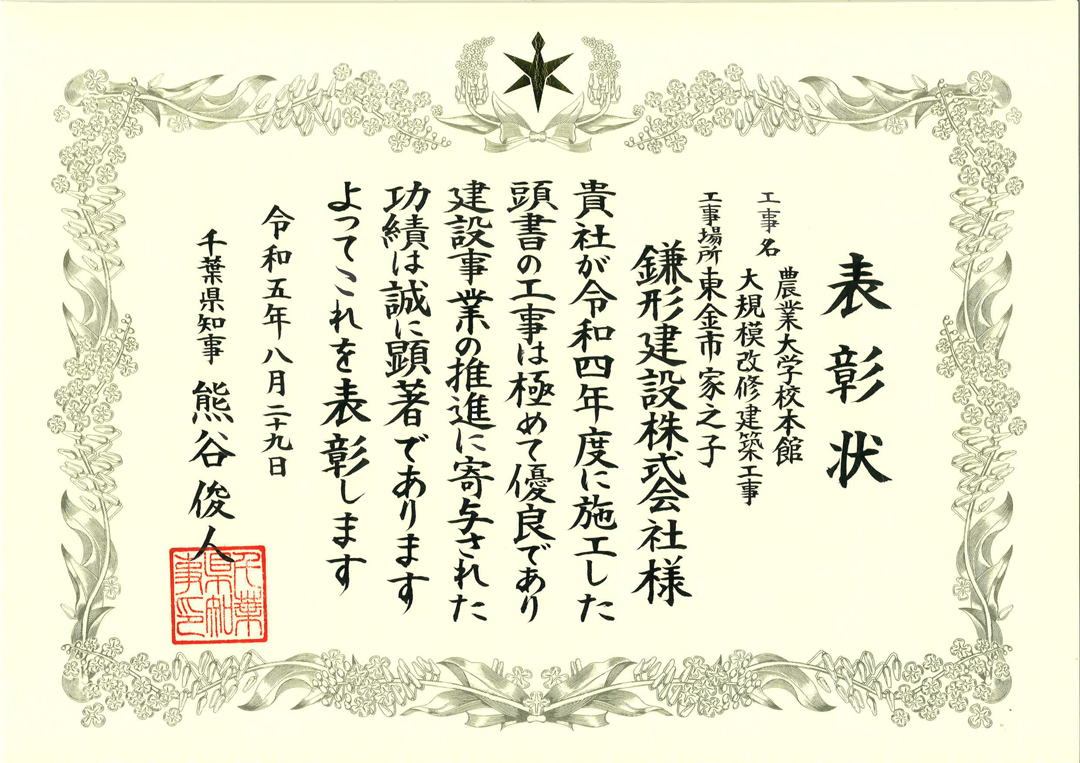 表彰状
工事名
農業大学校本館
大規模改修建築工事
工事場所 東金市家之子
鎌形建設株式会社様
貴社が令和四年度に施工した
頭書の工事は極めて優良であり
建設事業の推進に寄与された
功績は誠に顕著であります
よってこれを表彰します
令和五年八月二十九日
千葉県知事 熊谷俊人
千葉
県知
事印